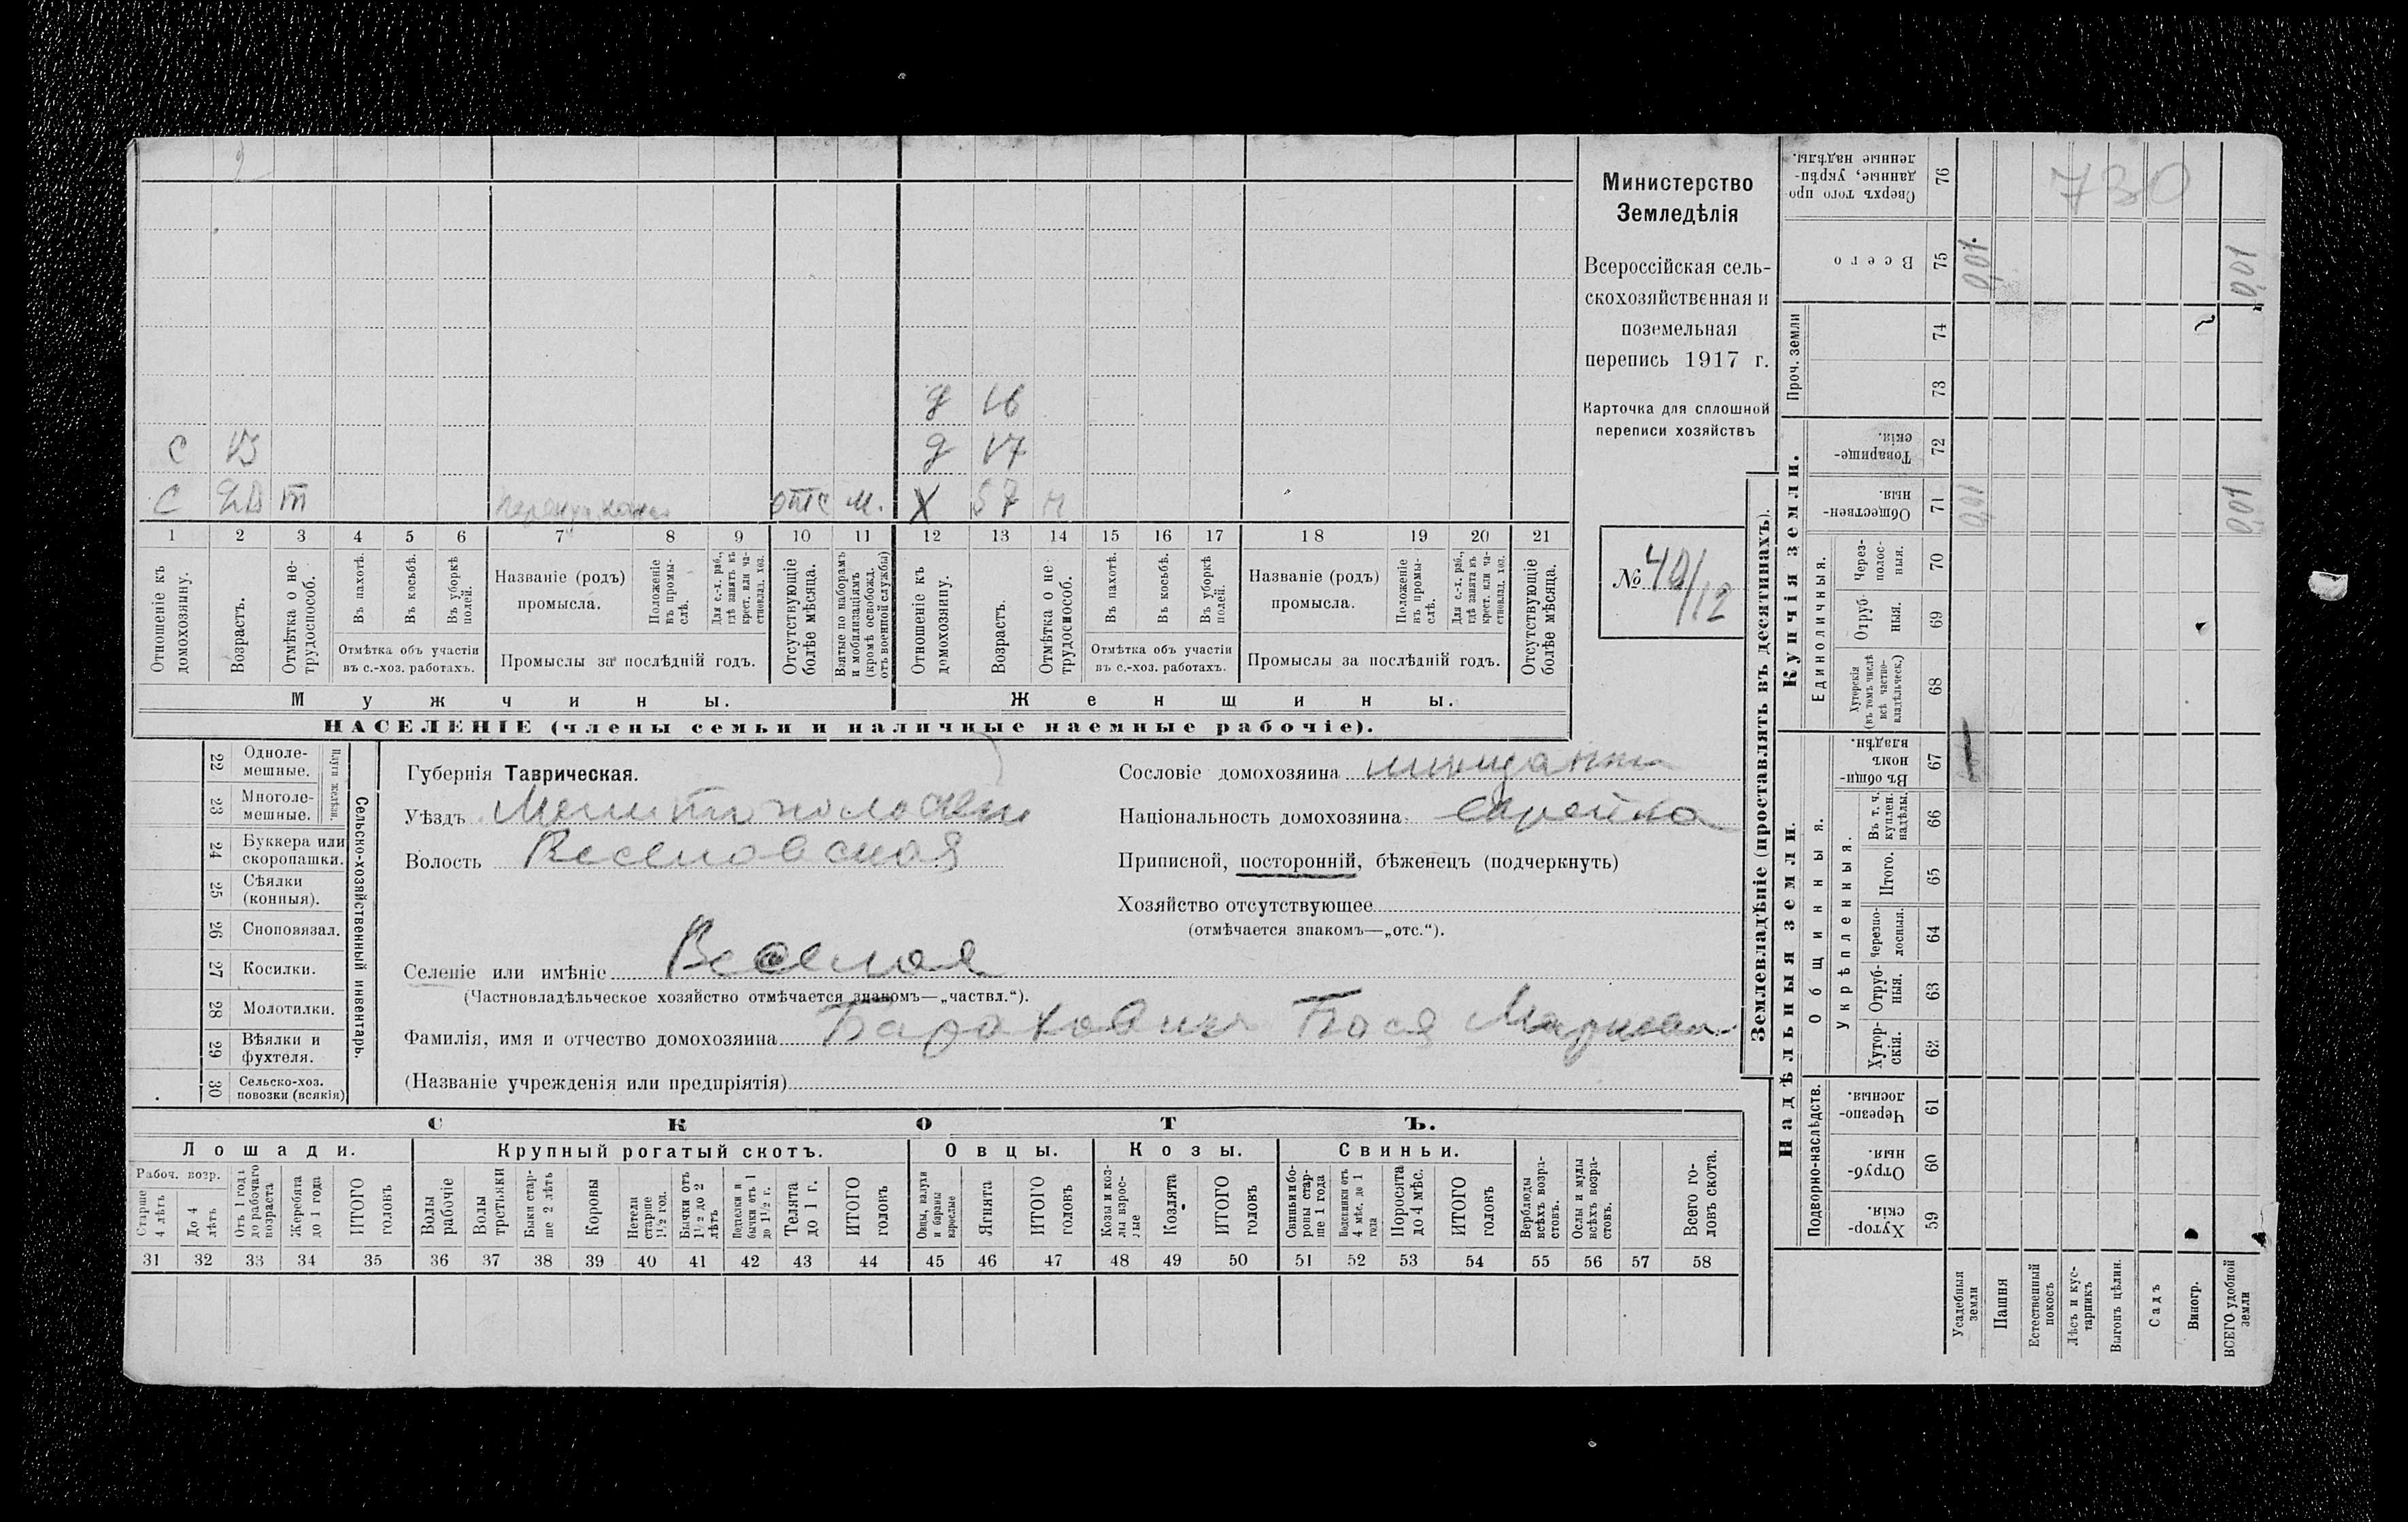 2
д 16
С 13 д 17
С т отс м. Х 57 н
1 2 3 4 5 6 7 8 9 10 11 12 13 14 15 16 17 18 19 20 21
Отношеніе къ домохозяину.
Возрастъ.
Отмѣтка о не-трудоспособ.
Въ пахотѣ.
Въ косьбѣ.
Въ уборкѣ полей.
Отмѣтка объ участіи
въ с.-хоз. работахъ.
Названіе (родъ)
промысла.
Положеніе въ промы-слѣ.
Для с.-х. раб., гдѣ занятъ въ крест. или ча-стновлад. хоз.
Промыслы за послѣдній годъ.
Отсутствующіе болѣе мѣсяца.
Взятые по наборамъ и мобилизаціямъ (кромѣ освобожд. отъ военной службы)
Отношеніе къ домохозяину.
Возрастъ.
Отмѣтка о не трудоспособ.
Въ пахотѣ.
Въ косьбѣ.
Въ уборкѣ полей.
Отмѣтка объ участіи
въ с.-хоз. работахъ.
Названіе (родъ)
промысла.
Положеніе въ промы-слѣ.
Для с.-х. раб., гдѣ занята въ крест. или ча-стновлад. хоз.
Промыслы за послѣдній годъ.
Отсутствующіе болѣе мѣсяца.
Мужчины.
Женщины.
НАСЕЛЕНІЕ (члены семьи и наличные наемные рабочіе).
Министерство
Земледѣлія
Всероссійская сель-
скохозяйственная и
поземельная
перепись 1917 г.
Карточка для сплошной
переписи хозяйствъ
№ 40/12
22 Одноле-мешные.
23 Многоле-мешные.
Плуги желѣзн.
24 Буккера или скоропашки.
25 Сѣялки (конныя).
26 Сноповязал.
27 Косилки.
28 Молотилки.
29 Вѣялки и фухтеля.
30 Сельско-хоз. повозки (всякія)
Сельско-хозяйственный инвентарь.
Губернія Таврическая.
Уѣздъ Мелитопольскій
Волость Веселовская
Селеніе или имѣніе Веселое
(Частновладѣльческое хозяйство отмѣчается знакомъ—„частвл.“).
Фамилія, имя и отчество домохозяина Барахович Бася
(Названіе учрежденія или предпріятія)
Сословіе домохозяина мещанка
Національность домохозяина еврейка
Приписной, посторонній, бѣженецъ (подчеркнуть)
Хозяйство отсутствующее
(отмѣчается знакомъ—„отс.“).
СКОТЪ.
Лошади.
Крупный рогатый скотъ.
Овцы.
Козы.
Свиньи.
Рабоч. возр.
Старше 4 лѣтъ
До 4 лѣтъ
Отъ 1 года до рабочаго возраста
Жеребята до 1 года
ИТОГО головъ
Волы рабочіе
Волы третьяки
Быки стар-ше 2 лѣтъ
Коровы
Нетели старше 1½ год.
Бычки отъ 1½ до 2 лѣтъ
Подтелки и бычки отъ 1 до 1½ г.
Телята до 1 г.
ИТОГО головъ
Овцы, валухи и бараны взрослые
Ягнята
ИТОГО головъ
Козы и коз-лы взрос-лые
Козлята
ИТОГО головъ
Свиньи и бо-ровы стар-ше 1 года
Подсвинки отъ 4 мѣс. до 1 года
Поросята до 4 мѣс.
ИТОГО головъ
Верблюды всѣхъ возра-стовъ.
Ослы и мулы всѣхъ возра-стовъ.
Всего го-ловъ скота.
31 32 33 34 35 36 37 38 39 40 41 42 43 44 45 46 47 48 49 50 51 52 53 54 55 56 57 58
Землевладѣніе (проставлять въ десятинахъ).
Надѣльныя земли.
Купчія земли.
Проч. земли
Подворно-наслѣдств.
Общинныя.
Укрѣпленныя.
Единоличныя.
Хутор-скія. 59
Отруб-ныя. 60
Черезпо-лосныя. 61
Хутор-скія. 62
Отруб-ныя. 63
Черезпо-лосныя. 64
Итого. 65
Въ т. ч. куплен. надѣлы. 66
Въ общин-номъ владѣн. 67
Хуторскія (въ томъ числѣ всѣ частно-владѣльческ.) 68
Отруб-ныя. 69
Через-полос-ныя. 70
Обществен-ныя. 71
Товарище-скія. 72
73
74
Всего 75
Сверхъ того про-данные, укрѣп-ленные надѣлы. 76
730
0,01 0,01
0,01 0,01
Усадебныя земли
Пашня
Естественный покосъ
Лѣсъ и кус-тарникъ
Выгонъ цѣлин.
Садъ
Виногр.
ВСЕГО удобной земли